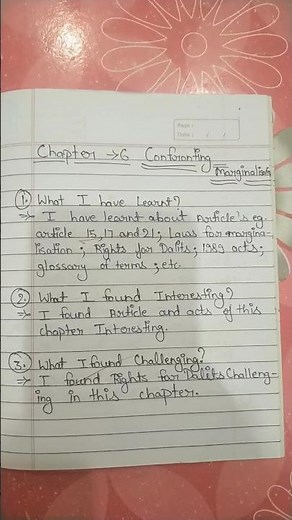 Page :
Date : / /
Chapter → 6 Confronting
Marginalisation
1. What I have Learnt?
⇒ I have learnt about Article's eg.
article 15, 17 and 21; Laws for margina-
lisation; Rights for Dalits; 1989 acts;
glossary of terms; etc.
2. What I found Interesting?
⇒ I found Article and acts of this
chapter Interesting.
3. What I found Challenging?
⇒ I found Rights for Dalits Challeng-
ing in this chapter.